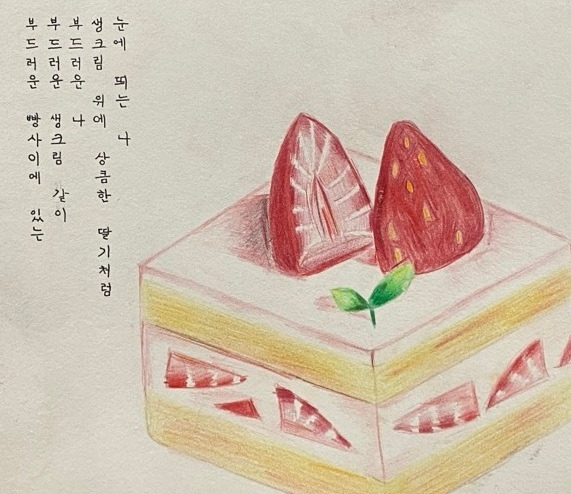 부드러운 빵사이에 있는
부드러운 생크림 같이
부드러운 나
생크림 위에 상큼한 딸기처럼
눈에 띄는 나